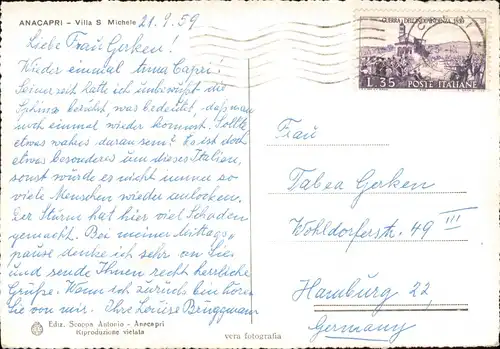 ANACAPRI - Villa S. Michele
21.9.59
Liebe Frau Gerken!
Wieder einmal Anna Capri!
Seinerzeit hatte ich unbewußt die
Sphinx berührt, was bedeutet, daß man
noch einmal wieder kommt. Sollte
etwas wahres daran sein? Es ist doch
etwas besonderes um dieses Italien,
sonst würde es nicht immer so
viele Menschen wieder anlocken.
Der Sturm hat hier viel Schaden
gemacht. Bei meiner Mittags
pause denke ich sehr an Sie
und sende Ihnen recht herzliche
Grüße. Wenn ich zurück bin hören
Sie von mir. Ihre Louise Brüggmann
GUERRA DELL'INDIPENDENZA 1859
L. 35 POSTE ITALIANE
Frau
Tabea Gerken
Wohldorferstr. 49 III
Hamburg 22,
Germany
Ediz. Scoppa Antonio - Anacapri
Riproduzione vietata
vera fotografia